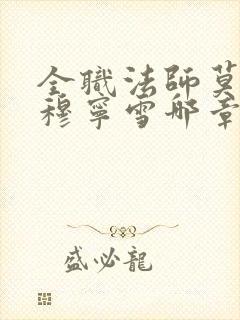 全職法師莫
穆寧雪哪章
盛必龍